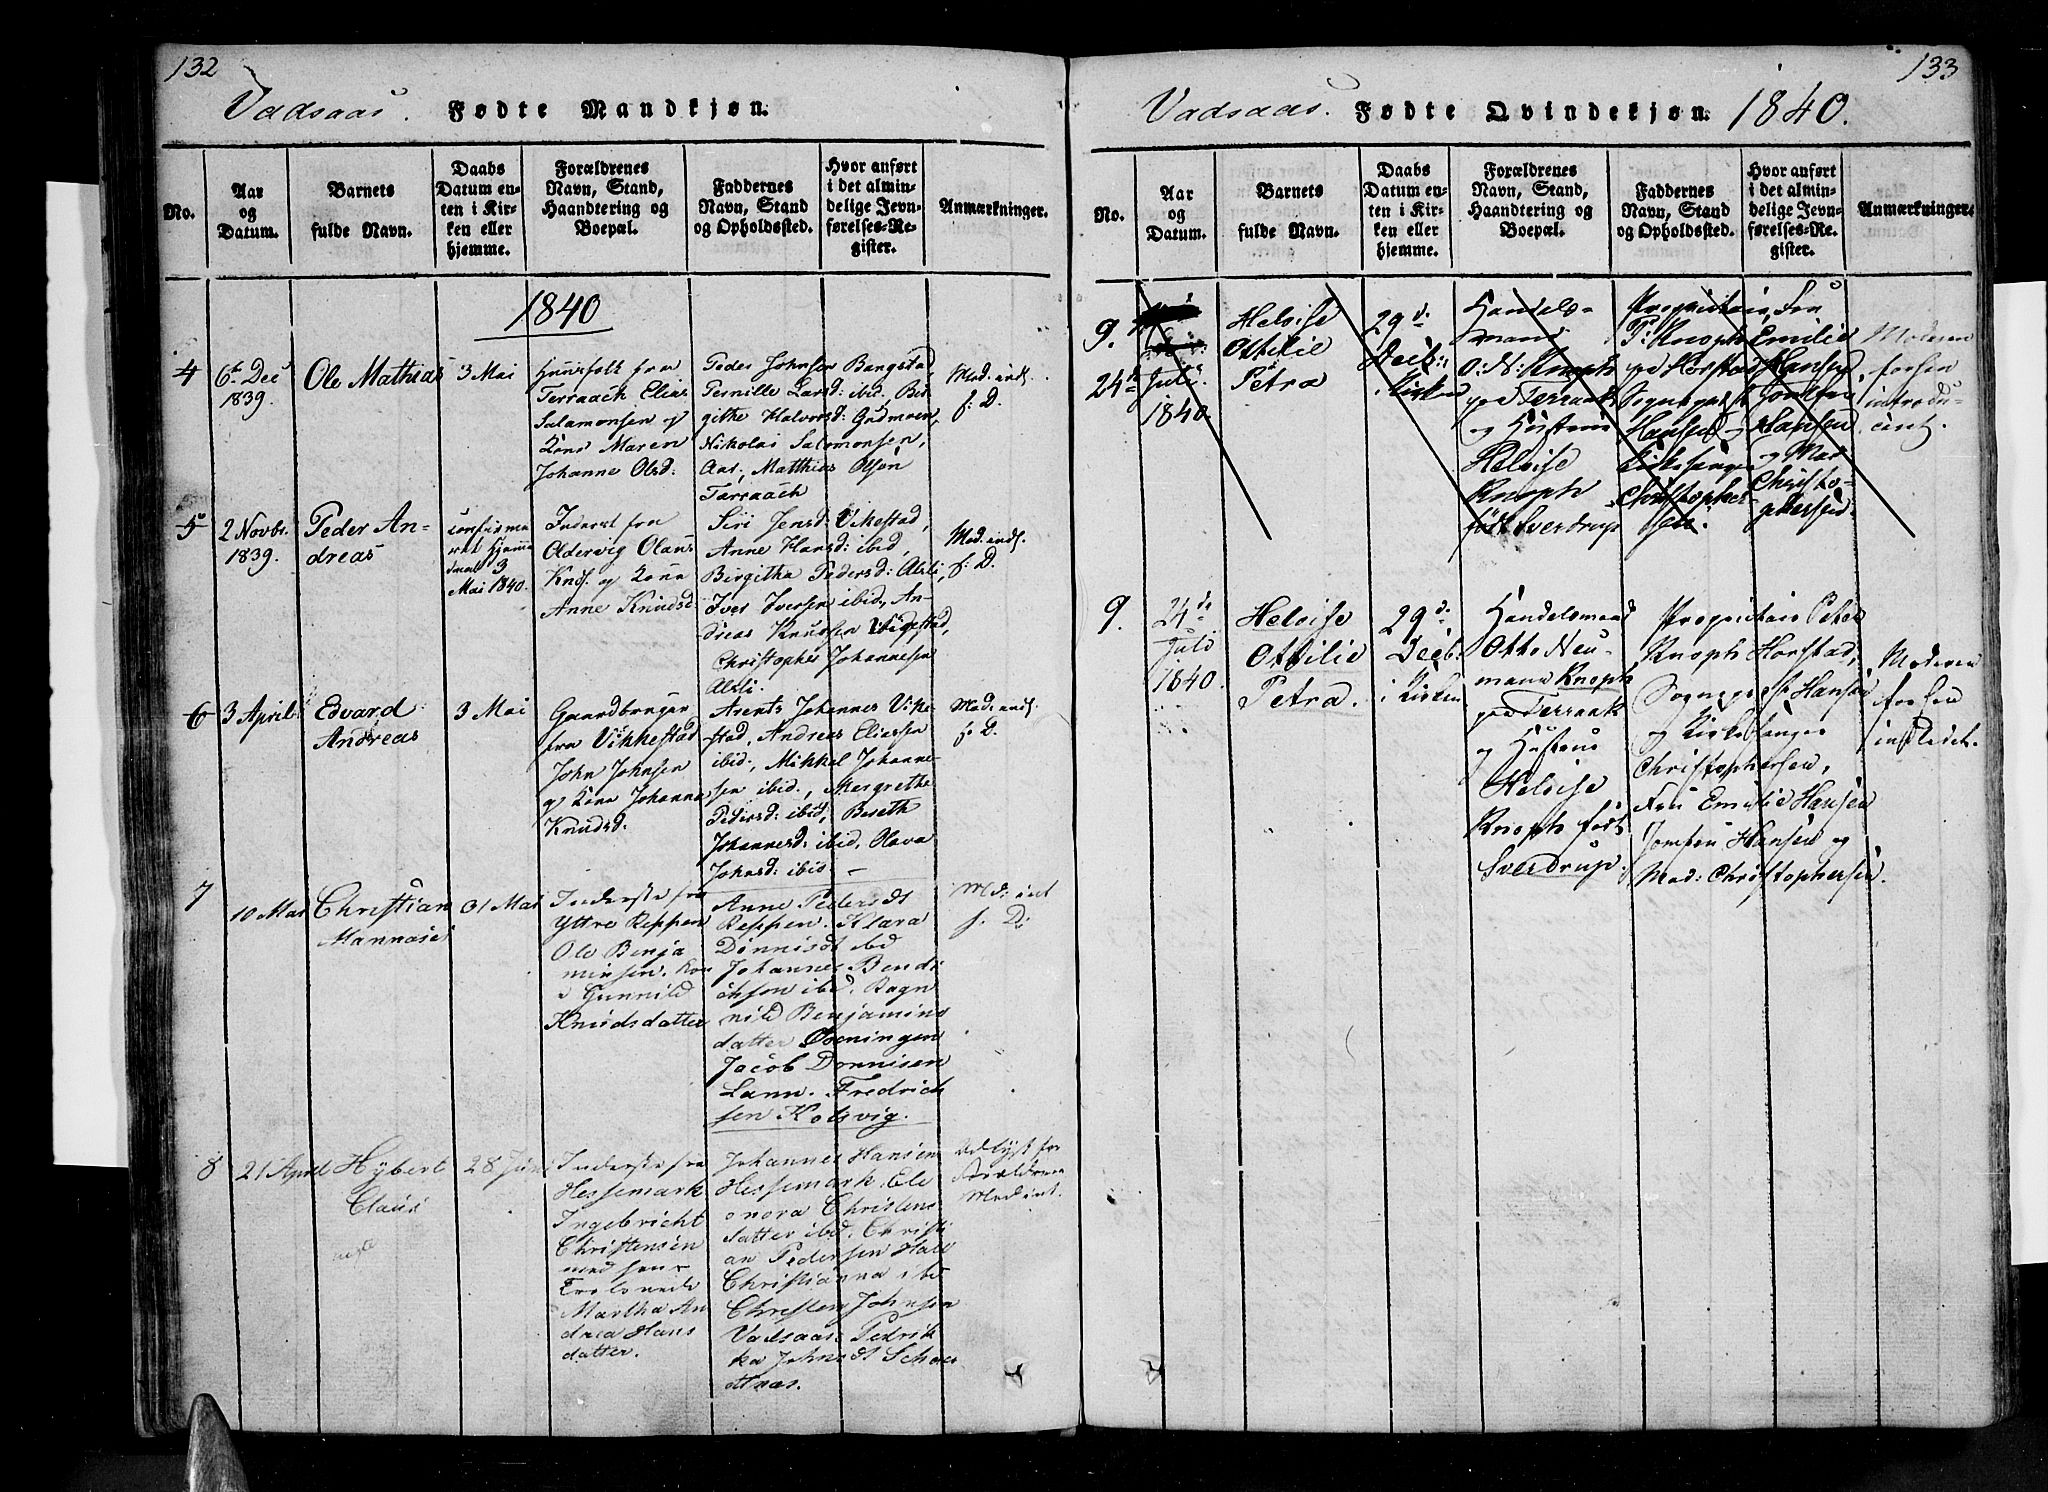 132
Vadsaas. Fødte Mandkjøn.
No.
Aar
og
Datum.
Barnets
fulde Navn.
Daabs
Datum en-
ten i Kir-
ken eller
hjemme.
Forældrenes
Navn, Stand,
Haandtering og
Boepæl.
Faddernes
Navn, Stand
og Opholdssted.
Hvor anført
i det almin-
delige Jevn-
førelses-Re-
gister.
Anmærkninger.
1840
4
6te Dec
1839.
Ole Mathias
3 Mai
Huusfolk fra
Terraach Elias
Salamonsen og
Kone Maren
Johanne Olsd:
Peder Johnsen Bangstad,
Pernille Larsd: ibid, Bir-
githe Halvorsd: Grdmoen,
Nikolai Salomonsen,
Aas, Matthias Olsøn
Tarraach
Mod. inds.
f: D.
5
2 Novbr.
1839.
Peder An-
dreas
confirme
ret hjemme
døbt 3
Mai 1840.
Inderst fra
Oldervig Olaus
Knds. og Kone
Anne Knudsd
Siri Jensd: Vikestad,
Anne Hansd: ibid,
Birgitha Pedersd: Alsli,
Iver Iversen ibid, An-
dreas Knudsen Vigestad,
Christopher Johannesen
Alsli.
Mod. inds.
f: D.
6
3 April
Edvard
Andreas
3 Mai
Gaardbruger
fra Vikkestad
John Johnsen
og Kone Johanne
Knudsd.
Arents Johannes Vike-
stad, Andreas Eliassen
ibid, Mikkel Johanne-
sen ibid, Mergrethe
Pedersd: ibid, Bereth
Johannesd: ibid, Olava
Johnsd: ibid. —
Mod. inds.
f: D.
7
10 Mai
Christian
Mannases
31 Mai
Inderste fra
Yttre Reppen
Ole Benja
minsen. Kon
e Gunnild
Knudsdatter
Anne Pedersdt
Reppen. Klara
Dønnisdt ibd
Johannes Bendi
chsen ibd. Ragn
nild Benjamins
datter Øoeningen
Jacob Donnisen
Lann. Fredrich
sen Kolsvig.
Mod: int
f. D:
8
21 April
Hybert
Claus
28 Juni
Inderste fra
Hessemark
Ingebricht
Christensen
med sen
Trolovede
Martha An
drea Hans
datter.
Johannes Hansen
Hessemark. Ele
onora Christens
datter ibd. Christi
an Pedersen Hald
Christianna ibd
Christen Johnsen
Vadsaas. Pedrik
ka Johnsdt Schars
ttnas.
Udlyst for
Forældrene
Mod int.
133
Vadsaas. Fødte Qvindekjøn. 1840.
No.
Aar
og
Datum.
Barnets
fulde Navn.
Daabs
Datum en-
ten i Kir-
ken eller
hjemme.
Forældrenes
Navn, Stand,
Haandtering og
Boepæl.
Faddernes
Navn, Stand
og Opholdssted.
Hvor anført
i det almin-
delige Jevn-
førelses-Re-
gister.
Anmærkninger.
9.
24de
Juli
1840.
Heloise
Ottilie
Petra
29d.
Decb:
i Kirken
Handels-
mand
O: N: Knoph
paa Terraak
og Hustrue
Heloise
Knoph
født Sverdrup
Proprietair
P: Knoph
paa Horstad
Sognepræst
Hansen og
Kirkesanger
Christopher-
sen.
Fru
Emilie
Hansen
Jomfru
Hansen
og Mad
Christo-
phersen.
Moderen
forhen
introdu-
cert.
9.
24de
Juli
1840.
Heloise
Ottilie
Petra.
29d.
Decb:
i Kirken
Handelsmand
Otto Neu-
mann Knoph
paa Terraak
og Hustrue
Heloise
Knoph født
Sverdrup.
Proprietair Peter
Knoph Horstad,
Sognepræst Hansen
og Kirkesanger
Christophersen,
Fru Emilie Hansen
Jomfru Hansen og
Mad: Christophersen.
Moderen
forhen
indledet.